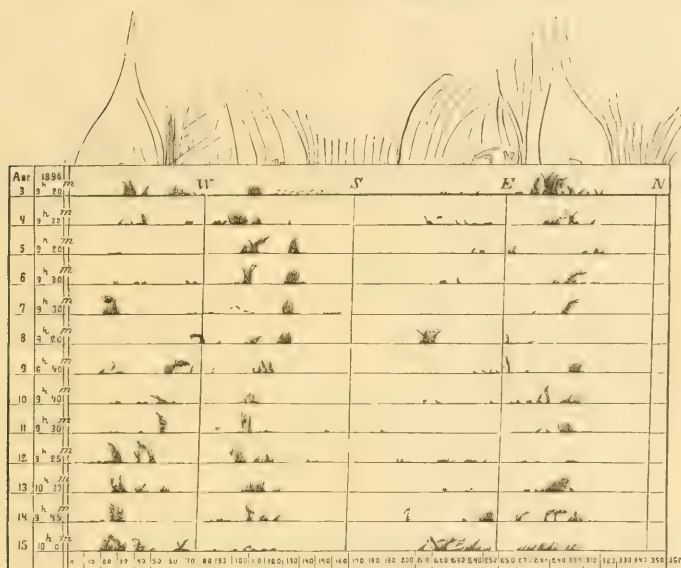 Aar 1896
W S E N
3 9h 20m
4 9h 30m
5 9h 20m
6 9h 30m
7 9h 30m
8 9h 20m
9 6h 40m
10 9h 40m
11 9h 30m
12 9h 25m
13 10h 30m
14 9h 45m
15 10h 0m
10 20 30 40 50 60 70 80 100 110 120 130 140 150 160 170 180 190 200 210 220 230 240 310 320 330 340 350